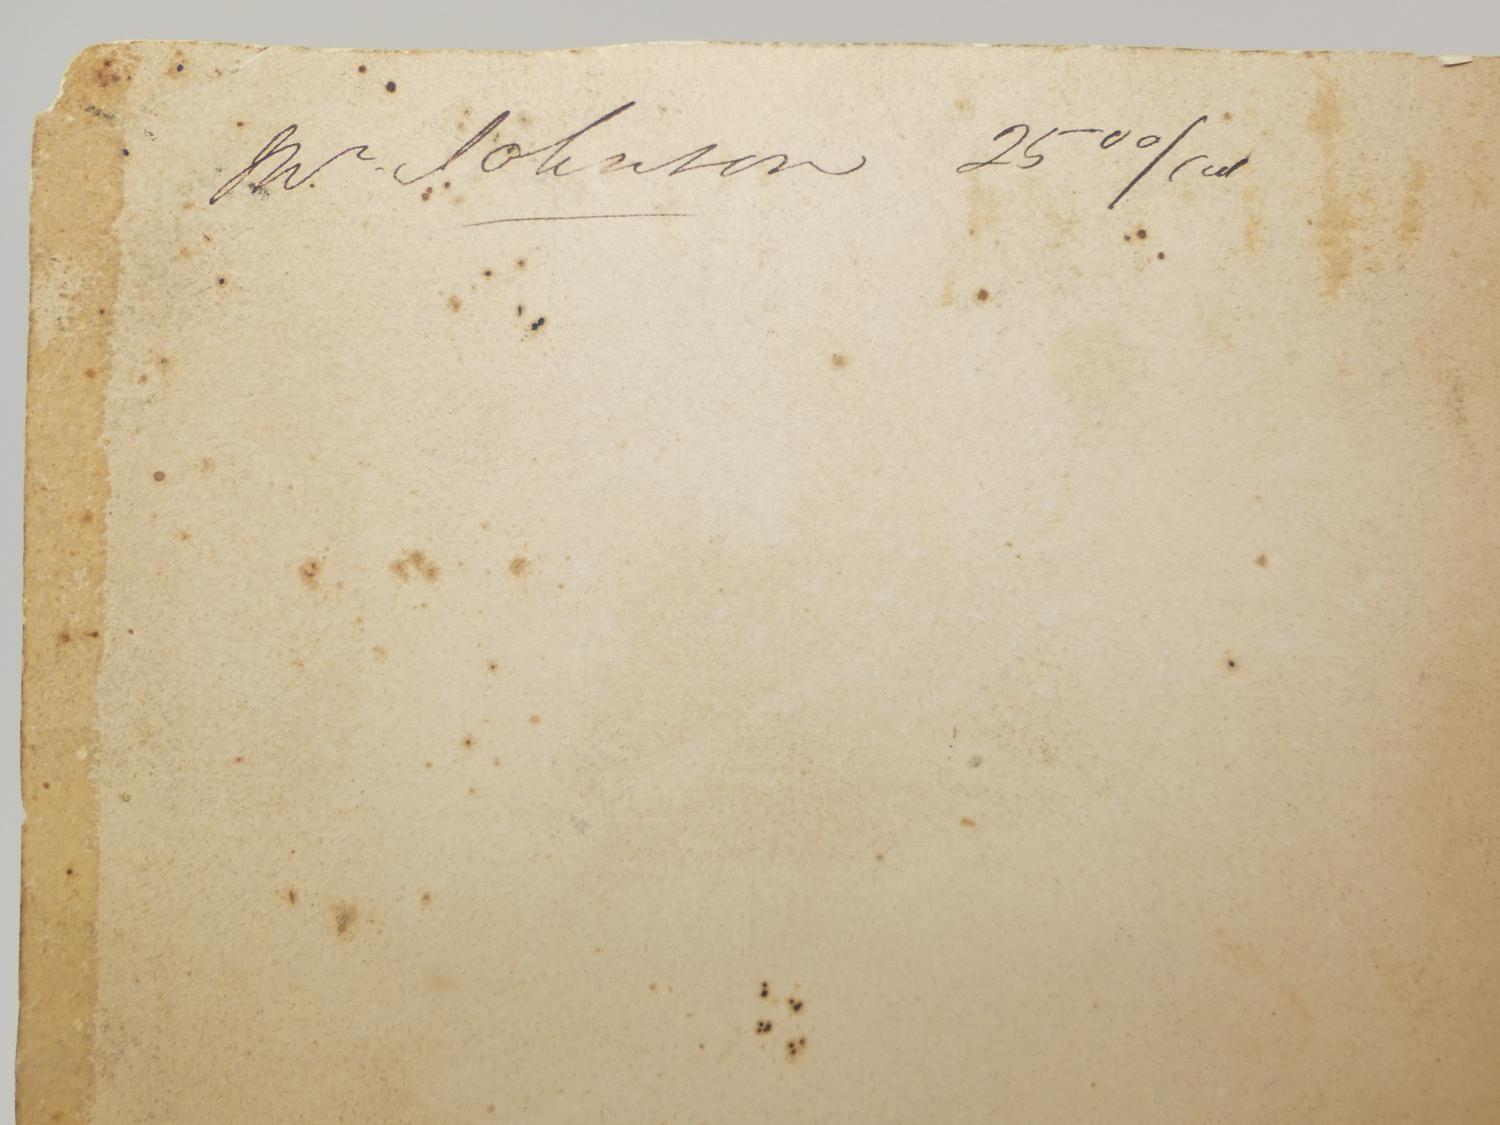 Mr. Johnson 25 00/